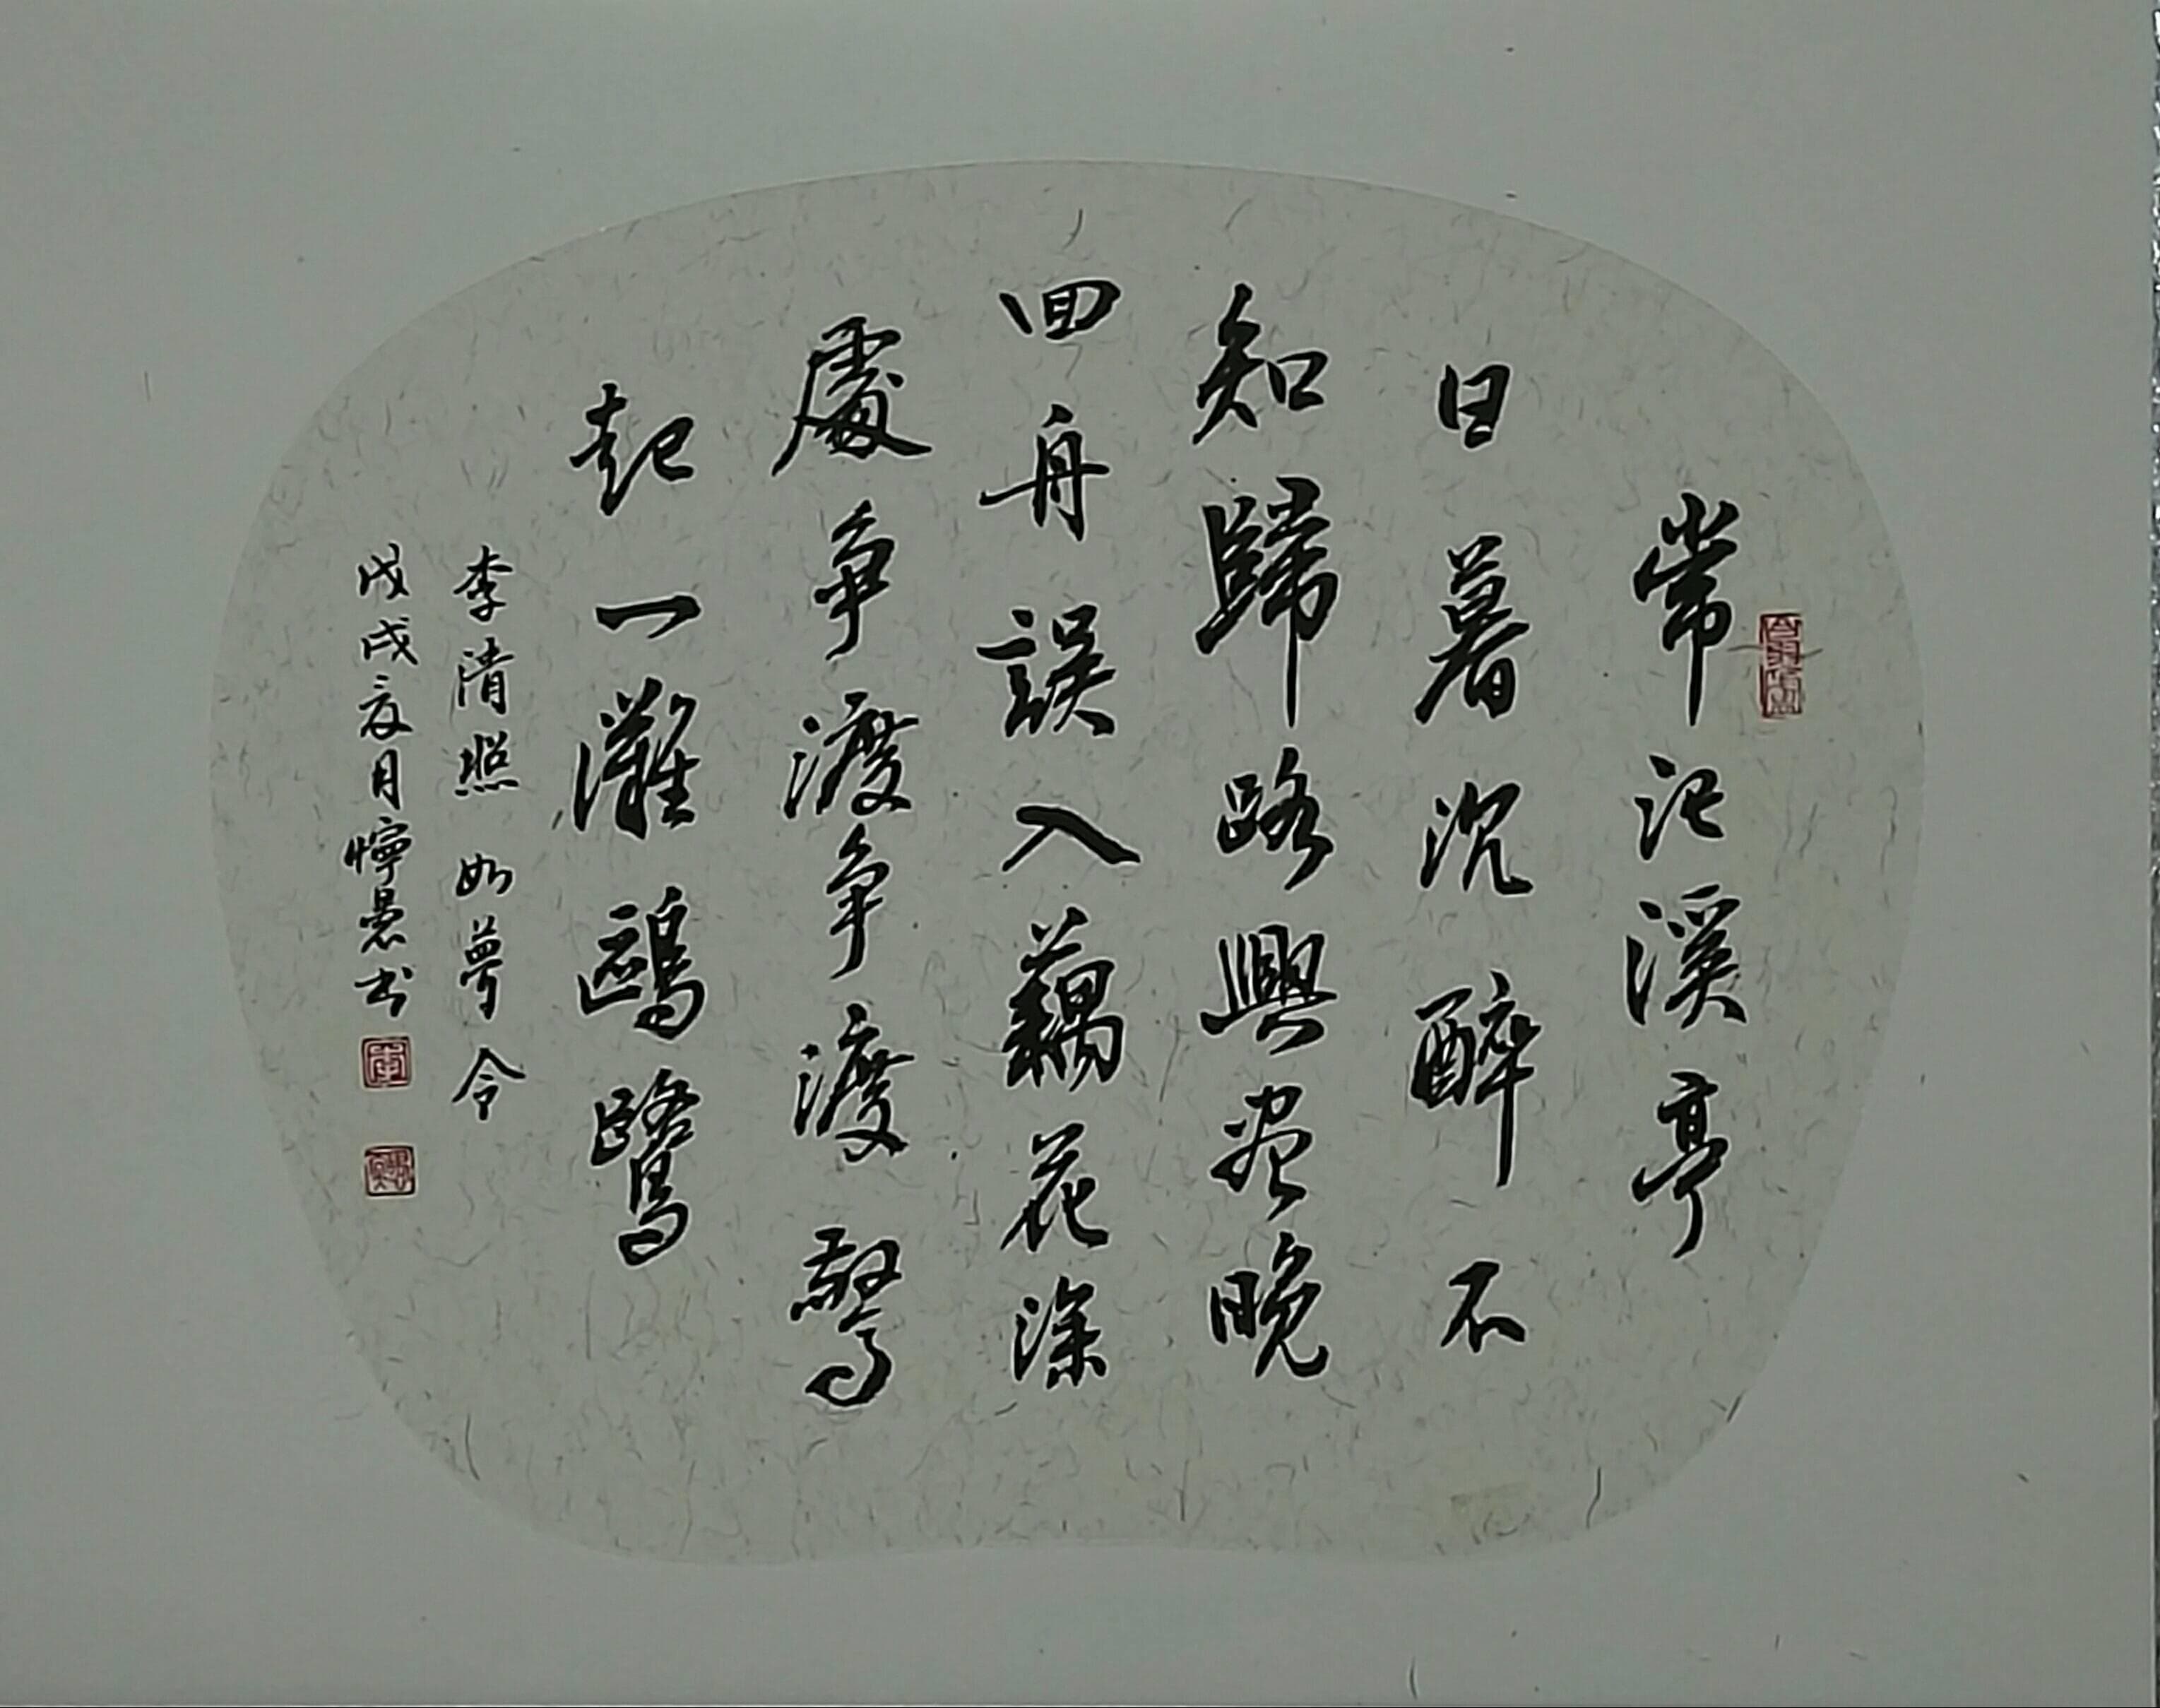 常记溪亭
日暮沉醉不
知歸路興尽晚
回舟誤入藕花深
處争渡争渡驚
起一灘鷗鷺
李清照如夢令
戊戌夏月懧墨书